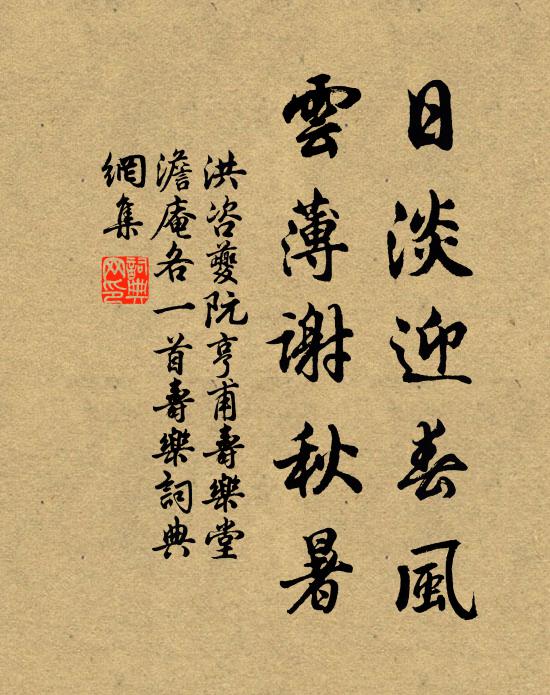 日淡迎春風
雲薄謝秋暑
洪咨夔阮亨甫壽樂堂
澹庵各一首壽樂詞典
網集
詞典
网印